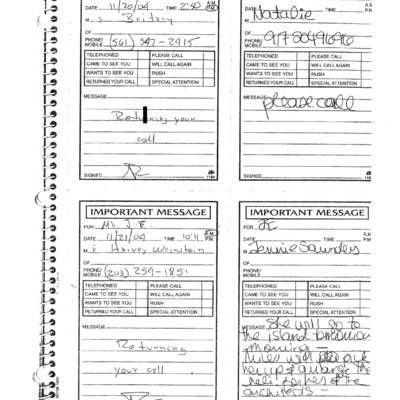 DATE 11/20/04 TIME 2:50 A.M. P.M.
M s. Britany
OF
PHONE/ MOBILE (561) 547-2915
TELEPHONED PLEASE CALL
CAME TO SEE YOU WILL CALL AGAIN
WANTS TO SEE YOU RUSH
RETURNED YOUR CALL SPECIAL ATTENTION
MESSAGE
Returning your
call
SIGNED
DATE TIME A.M. P.M.
Natalie
OF
PHONE/ MOBILE
TELEPHONED PLEASE CALL
CAME TO SEE YOU WILL CALL AGAIN
WANTS TO SEE YOU RUSH
RETURNED YOUR CALL SPECIAL ATTENTION
MESSAGE
please call
SIGNED
IMPORTANT MESSAGE
FOR Mr. J.E.
DATE 11/21/04 TIME 10:11 A.M. P.M.
M r. Harvey Weinstein
OF
PHONE/ MOBILE (203) 254-185
TELEPHONED PLEASE CALL
CAME TO SEE YOU WILL CALL AGAIN
WANTS TO SEE YOU RUSH
RETURNED YOUR CALL SPECIAL ATTENTION
MESSAGE
Returning
your call
IMPORTANT MESSAGE
FOR JE
DATE TIME A.M. P.M.
Jennie Saunders
OF
PHONE/ MOBILE
TELEPHONED PLEASE CALL
CAME TO SEE YOU WILL CALL AGAIN
WANTS TO SEE YOU RUSH
RETURNED YOUR CALL SPECIAL ATTENTION
MESSAGE
She will go to
the island tomorrow
morning -
will pick
her up
of the
architects -